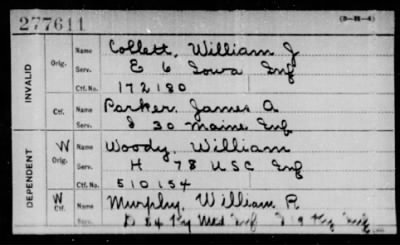 277611
(3-M-4)
INVALID
Orig.
Name Collett, William J
Serv. E 6 Iowa Inf
Ctf. No. 172180
Ctf.
Name Parker, James A.
Serv. I 30 Maine Inf
DEPENDENT
W
Orig.
Name Woody, William
Serv. H 78 USC Inf
Ctf. No. 510154
W
Ctf.
Name Murphy, William R
Serv. D 34 Ky Inf